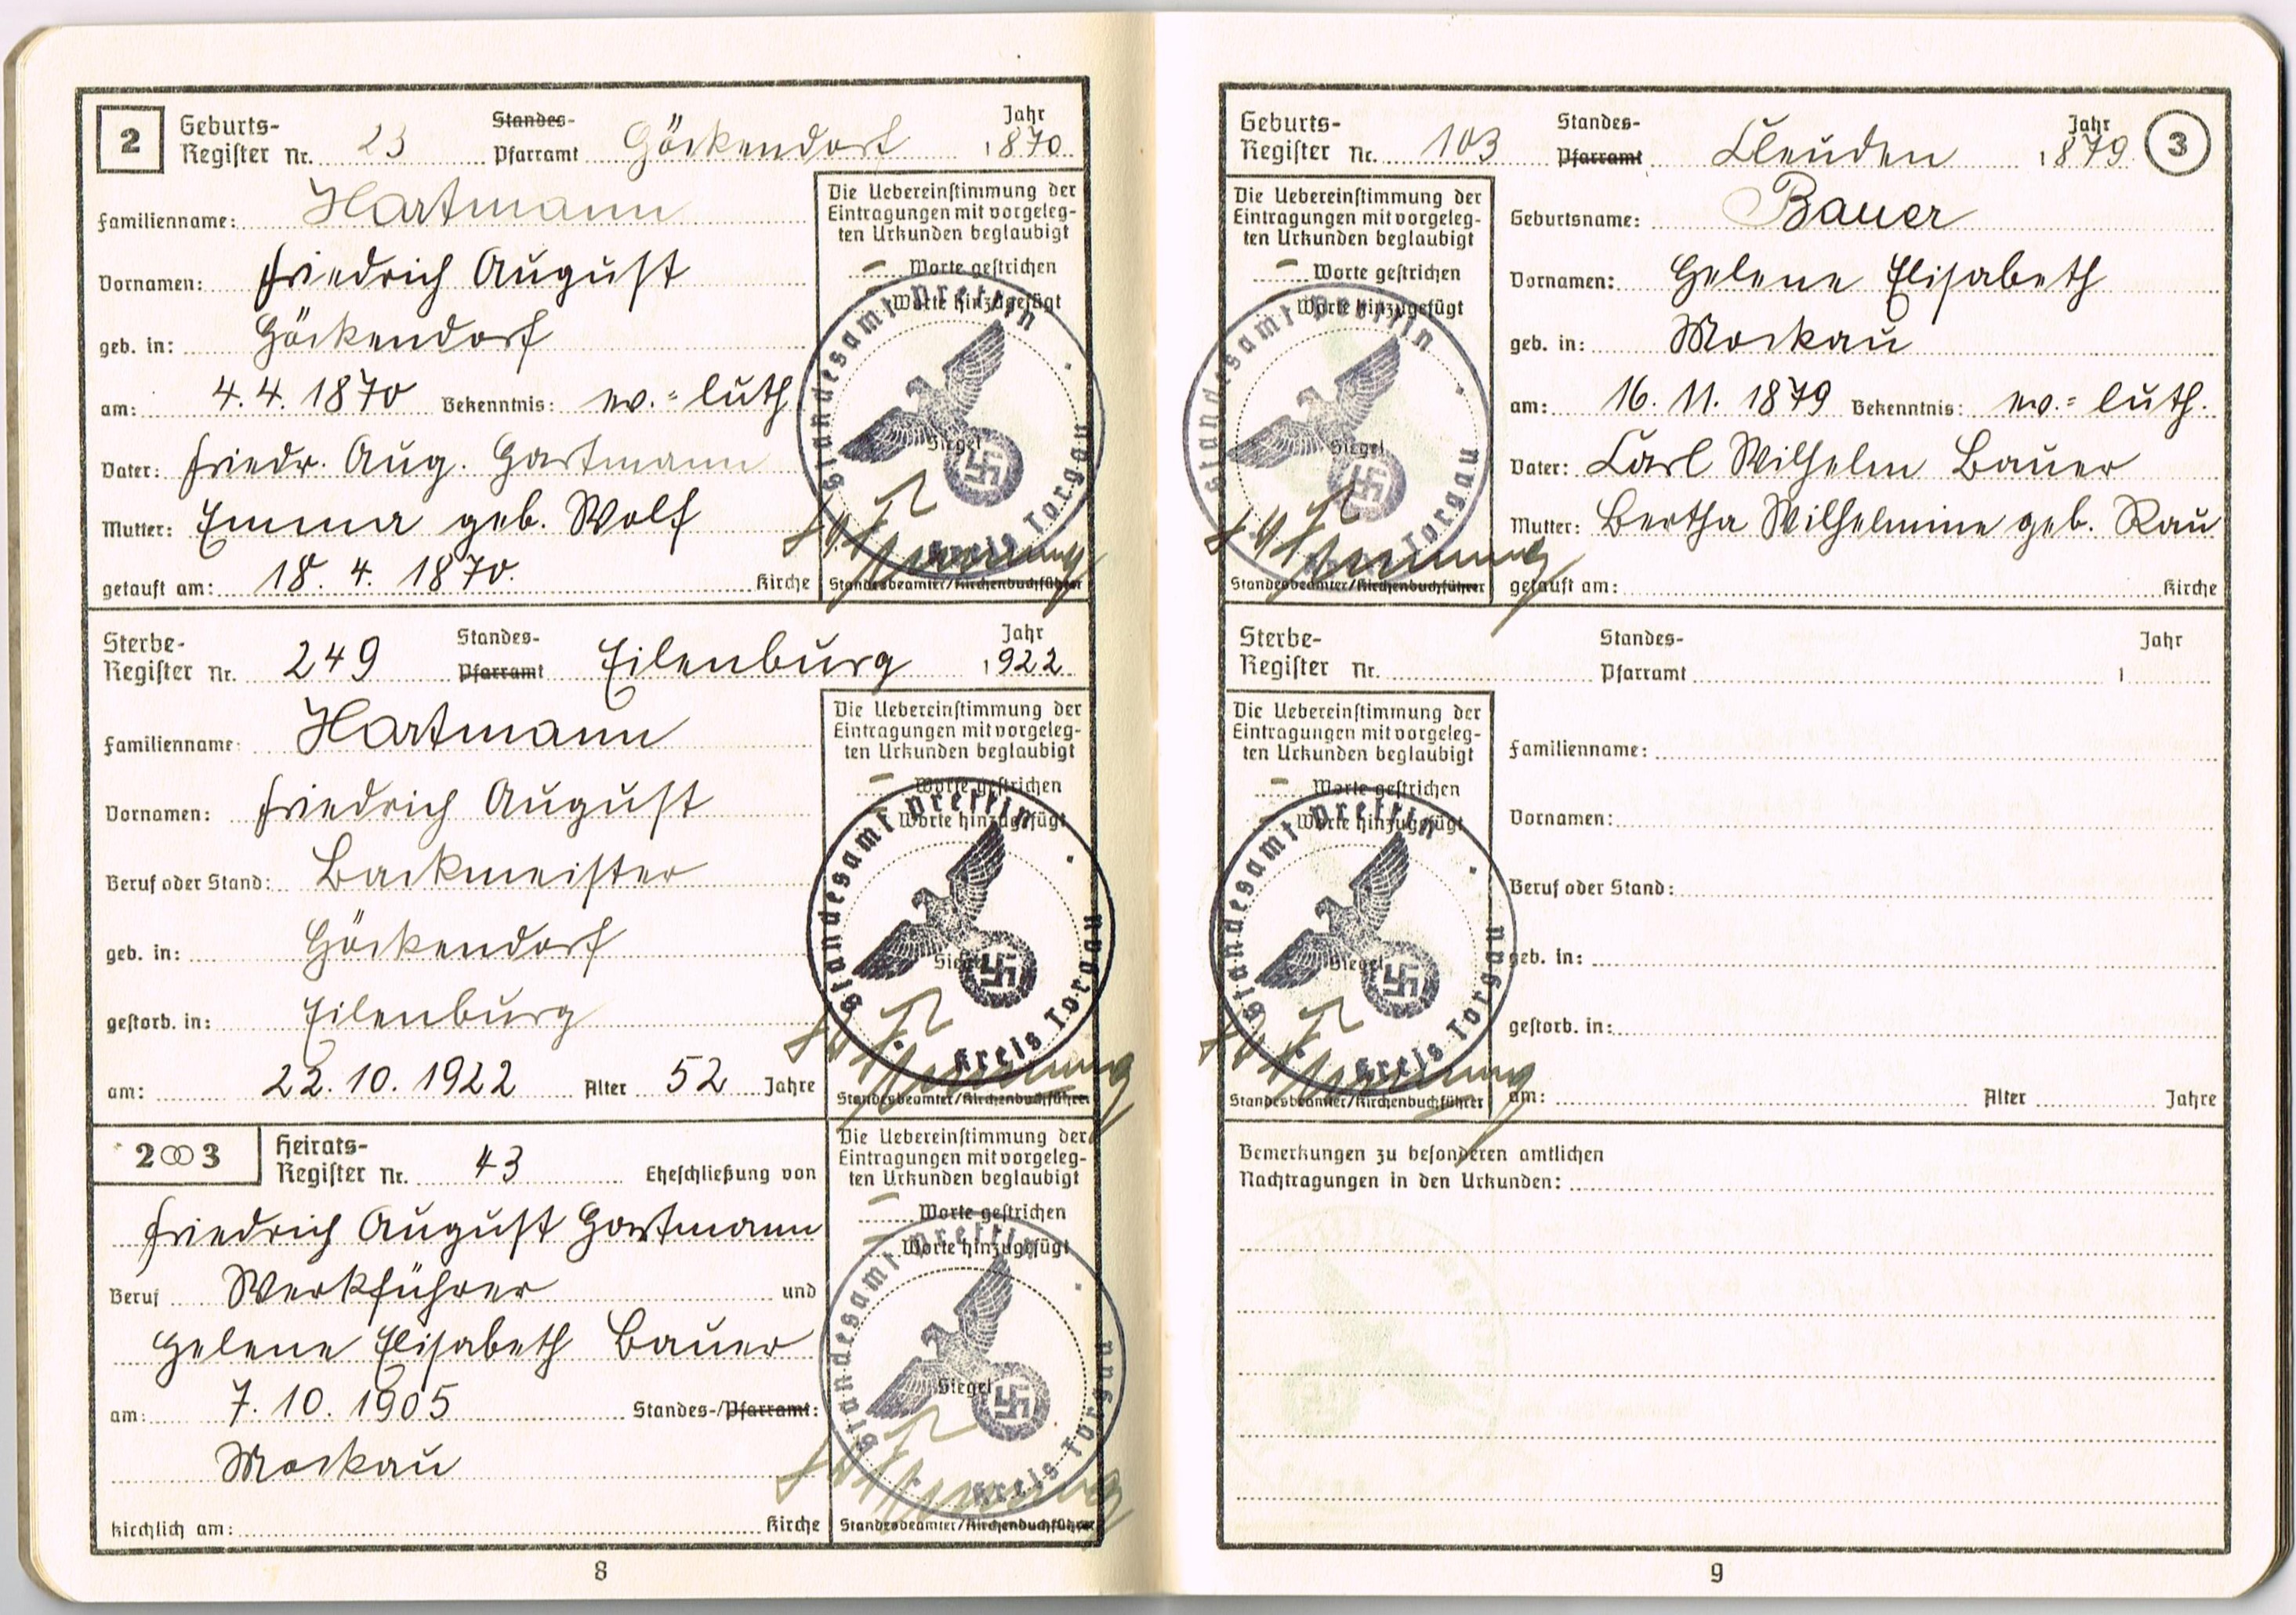 2
Geburts-
Register Nr. 23 Standes- Pfarramt Göckendorf Jahr 1870
Familienname: Hartmann
Vornamen: Friedrich August
geb. in: Göckendorf
am: 4.4.1870 Bekenntnis: ev.=luth.
Vater: Friedr. Aug. Hartmann
Mutter: Emma geb. Wolf
getauft am: 18. 4. 1870. Kirche
Die Uebereinstimmung der
Eintragungen mit vorgeleg-
ten Urkunden beglaubigt
– Worte gestrichen
Worte hinzugefügt
Standesamt Prettin
Siegel
Kreis Torgau
Standesbeamter/Kirchenbuchführer
Sterbe-
Register Nr. 249 Standes- Pfarramt Eilenburg Jahr 1922
Familienname: Hartmann
Vornamen: Friedrich August
Beruf oder Stand: Backmeister
geb. in: Göckendorf
gestorb. in: Eilenburg
am: 22.10.1922 Alter 52 Jahre
Die Uebereinstimmung der
Eintragungen mit vorgeleg-
ten Urkunden beglaubigt
– Worte gestrichen
Worte hinzugefügt
Standesamt Prettin
Siegel
Kreis Torgau
Standesbeamter/Kirchenbuchführer
2 ∞ 3
Heirats-
Register Nr. 43 Eheschließung von
Friedrich August Hartmann
Beruf Werkführer und
Helene Elisabeth Bauer
am: 7.10.1905 Standes-/Pfarramt:
Mockau
kirchlich am: Kirche
Die Uebereinstimmung der
Eintragungen mit vorgeleg-
ten Urkunden beglaubigt
– Worte gestrichen
Worte hinzugefügt
Standesamt Prettin
Siegel
Kreis Torgau
Standesbeamter/Kirchenbuchführer
8
Geburts-
Register Nr. 103 Standes- Pfarramt Cleuden Jahr 1879
3
Geburtsname: Bauer
Vornamen: Helene Elisabeth
geb. in: Mockau
am: 16. 11. 1879 Bekenntnis: ev.=luth.
Vater: Carl Wilhelm Bauer
Mutter: Bertha Wilhelmine geb. Rau
getauft am: Kirche
Die Uebereinstimmung der
Eintragungen mit vorgeleg-
ten Urkunden beglaubigt
– Worte gestrichen
Worte hinzugefügt
Standesamt Prettin
Siegel
Kreis Torgau
Standesbeamter/Kirchenbuchführer
Sterbe-
Register Nr. Standes- Pfarramt Jahr 1
Familienname:
Vornamen:
Beruf oder Stand:
geb. in:
gestorb. in:
am: Alter Jahre
Die Uebereinstimmung der
Eintragungen mit vorgeleg-
ten Urkunden beglaubigt
– Worte gestrichen
Worte hinzugefügt
Standesamt Prettin
Siegel
Kreis Torgau
Standesbeamter/Kirchenbuchführer
Bemerkungen zu besonderen amtlichen
Nachtragungen in den Urkunden:
9